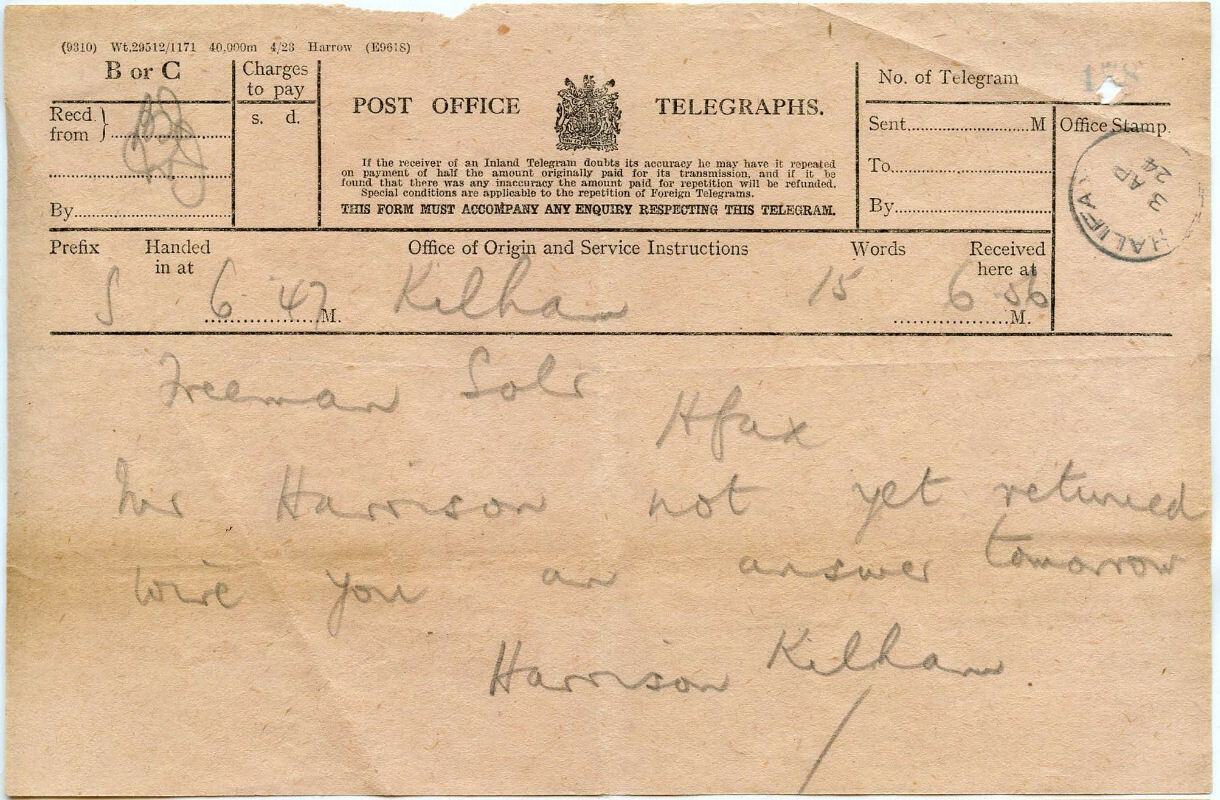 (9310) Wt.29512/1171 40,000m 4/23 Harrow (E9618)
B or C
Charges to pay
s. d.
Recd from
By
POST OFFICE TELEGRAPHS.
If the receiver of an Inland Telegram doubts its accuracy he may have it repeated
on payment of half the amount originally paid for its transmission, and if it be
found that there was any inaccuracy the amount paid for repetition will be refunded.
Special conditions are applicable to the repetition of Foreign Telegrams.
THIS FORM MUST ACCOMPANY ANY ENQUIRY RESPECTING THIS TELEGRAM.
No. of Telegram
Sent M
To
By
Office Stamp.
HALIFAX
3 AP
24
Prefix Handed in at Office of Origin and Service Instructions Words Received here at
S 6 47 M. Kilham 15 6 56 M.
Freeman Solr
Hfax
Mr Harrison not yet returned
wire you an answer tomorrow
Harrison Kilham